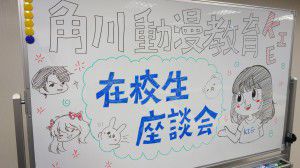 角川動漫教育
KIE
在校生
座談会
KIE